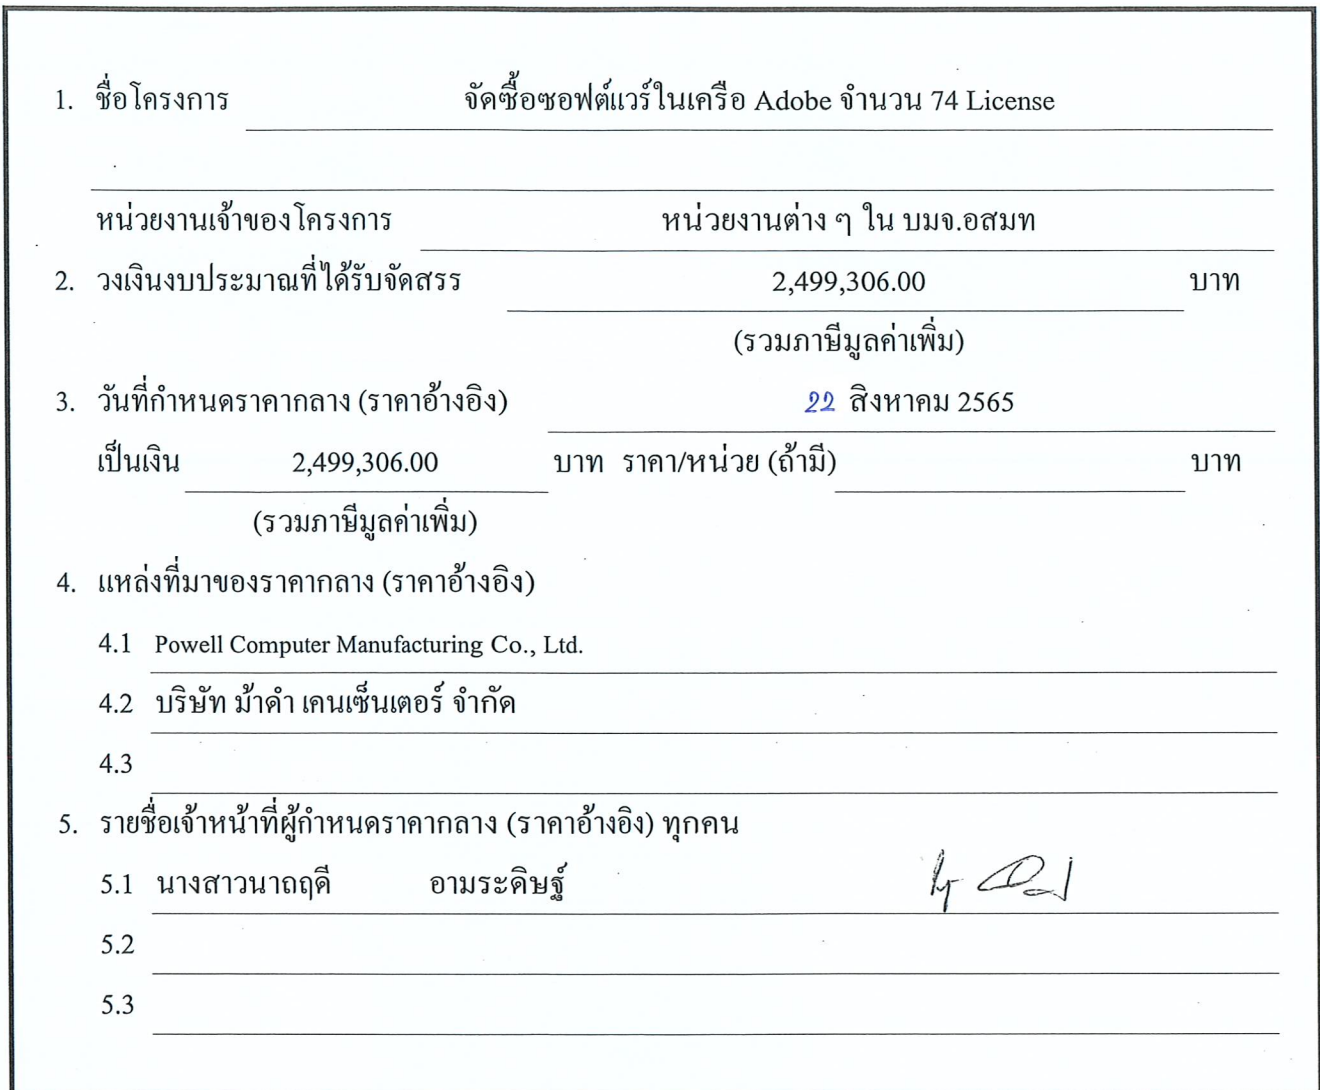 1. ชื่อโครงการ จัดซื้อซอฟต์แวร์ในเครือ Adobe จำนวน 74 License
หน่วยงานเจ้าของโครงการ หน่วยงานต่าง ๆ ใน บมจ.อสมท
2. วงเงินงบประมาณที่ได้รับจัดสรร 2,499,306.00 บาท
(รวมภาษีมูลค่าเพิ่ม)
3. วันที่กำหนดราคากลาง (ราคาอ้างอิง) 22 สิงหาคม 2565
เป็นเงิน 2,499,306.00 บาท ราคา/หน่วย (ถ้ามี) บาท
(รวมภาษีมูลค่าเพิ่ม)
4. แหล่งที่มาของราคากลาง (ราคาอ้างอิง)
4.1 Powell Computer Manufacturing Co., Ltd.
4.2 บริษัท ม้าดำ เคนเซ็นเตอร์ จำกัด
4.3
5. รายชื่อเจ้าหน้าที่ผู้กำหนดราคากลาง (ราคาอ้างอิง) ทุกคน
5.1 นางสาวนาถฤดี อามระดิษฐ์
5.2
5.3